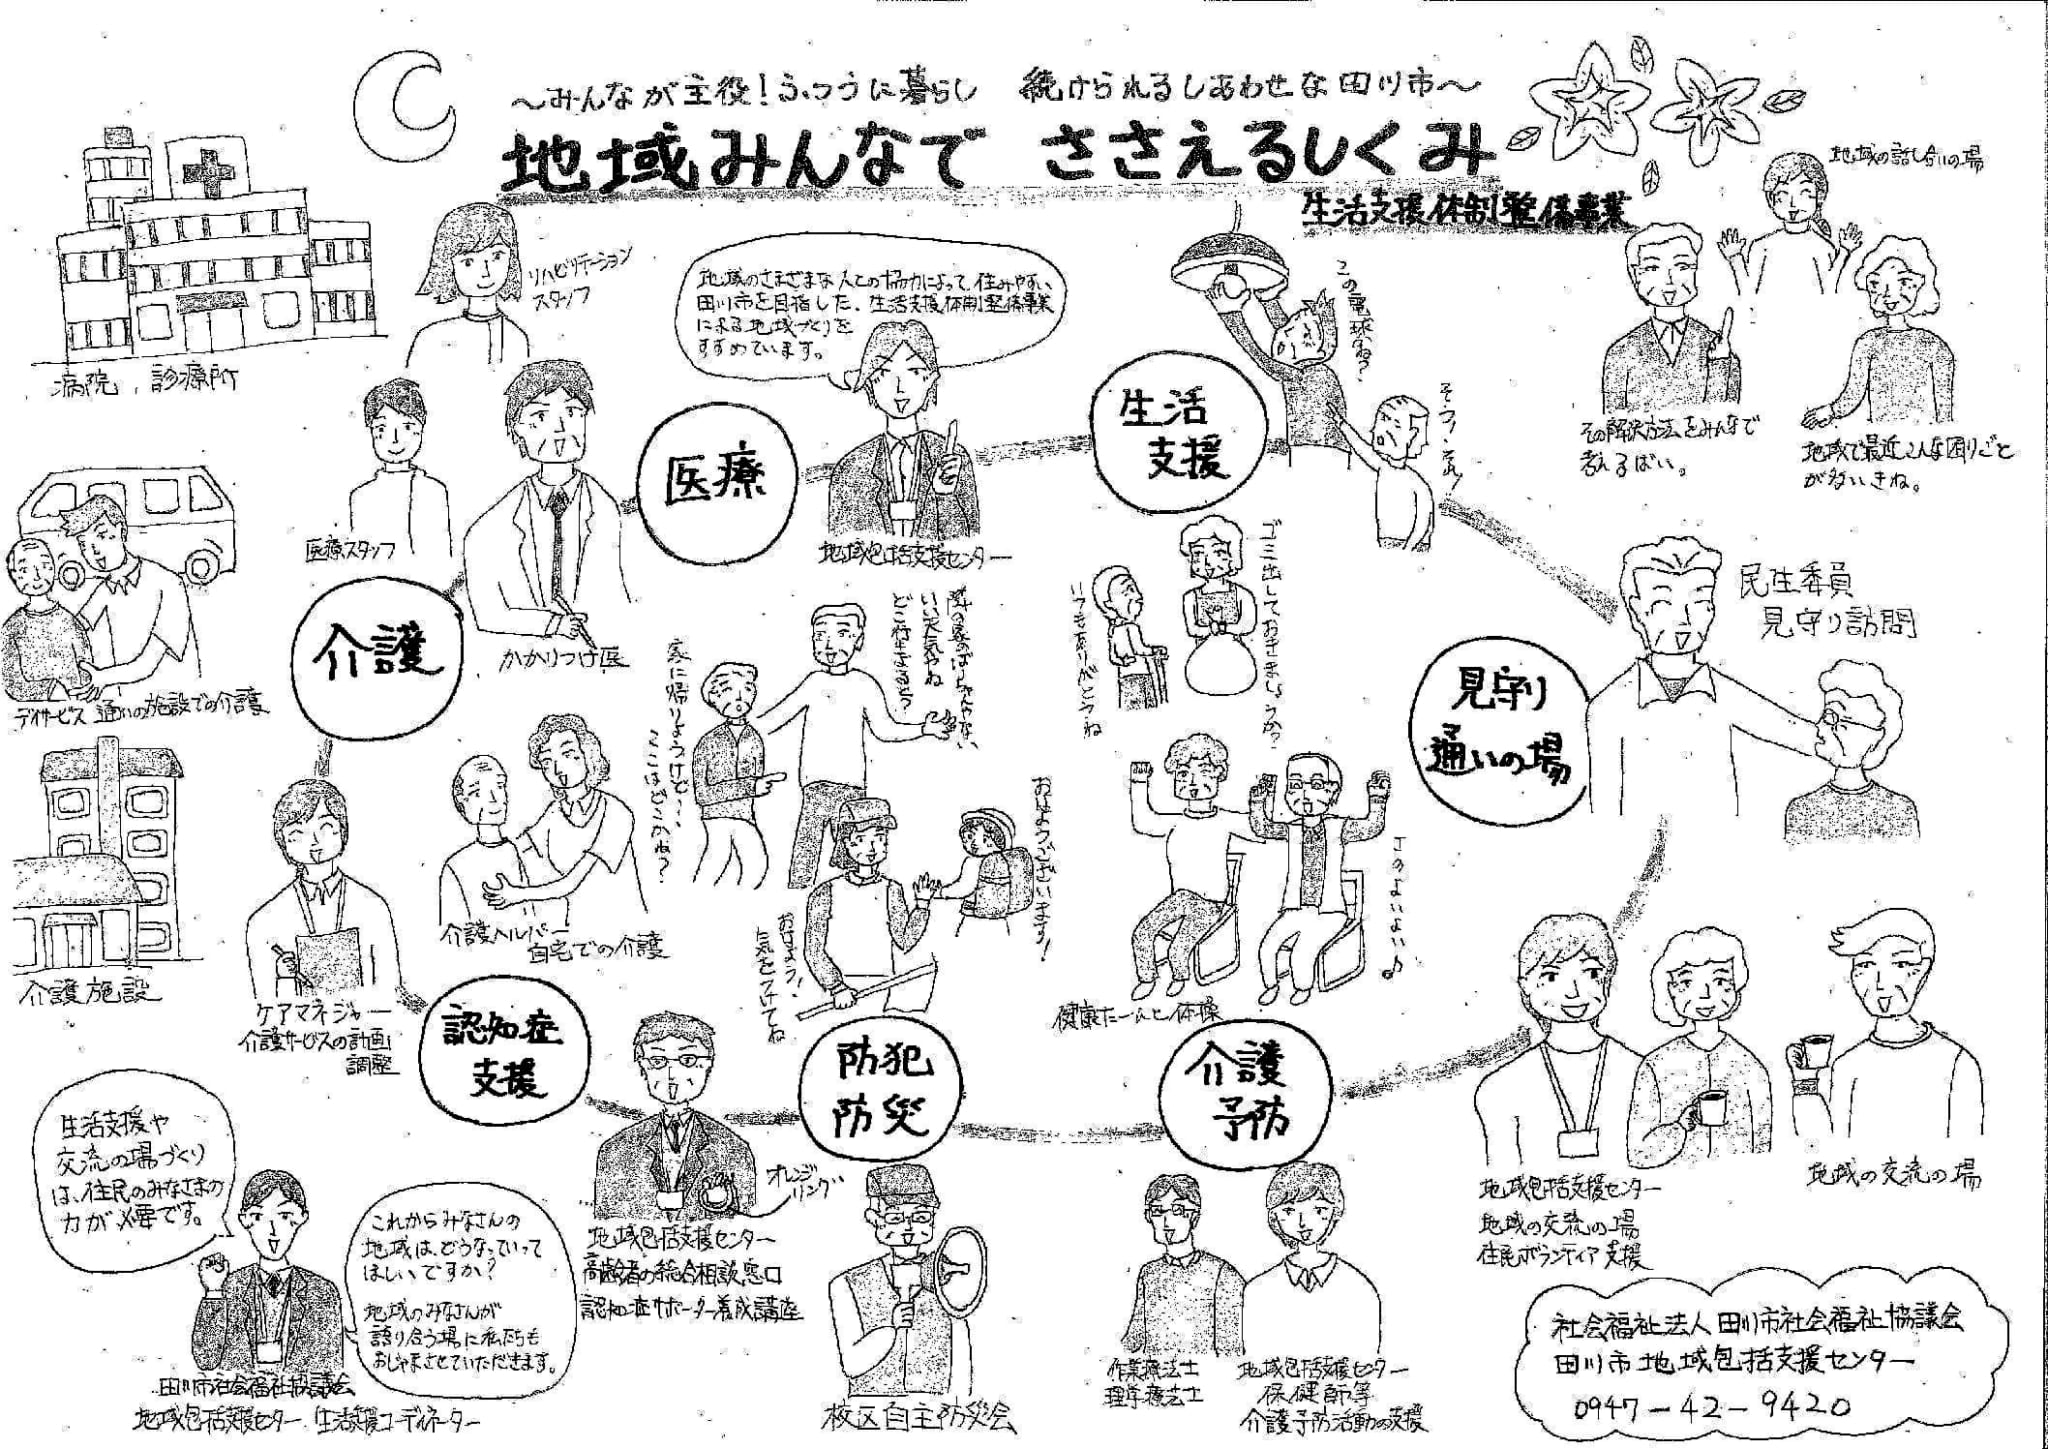 ～みんなが主役！ふつうに暮らし 続けられるしあわせな田川市～
地域みんなで ささえるしくみ
生活支援体制整備事業
病院、診療所
リハビリテーション
スタッフ
地域のさまざまな人との協力によって、住みやすい
田川市を目指した、生活支援体制整備事業
による地域づくりを
すすめています。
地域包括支援センター
医療スタッフ
かかりつけ医
医療
生活
支援
この電球かね？
そう！それ！
地域の話し合いの場
その解決方法をみんなで
考えるばい。
地域で最近こんな困りごと
が多いきね。
介護
デイサービス 通いの施設での介護
介護施設
ケアマネジャー
介護サービスの計画
調整
介護ヘルパー
自宅での介護
家に帰りようけど…
ここはどこかね？
隣の家のばあちゃんやない
いい天気やね
どこ行きよると？
ゴミ出しておきましょうか？
いつもありがとうね
見守り
通いの場
民生委員
見守り訪問
おはようございます！
おはよう！
気をつけてね
じのよいよい♪
健康たーんと体操
認知症
支援
防犯
防災
介護
予防
オレンジ
リング
地域包括支援センター
高齢者の総合相談窓口
認知症サポーター養成講座
校区自主防災会
作業療法士
理学療法士
地域包括支援センター
保健師等
介護予防活動の支援
地域包括支援センター
地域の交流の場
住民ボランティア支援
地域の交流の場
生活支援や
交流の場づくり
は、住民のみなさまの
力が必要です。
これからみなさんの
地域は、どうなっていって
ほしいですか？
地域のみなさんが
語り合う場に私たちも
おじゃまさせていただきます。
田川市社会福祉協議会
地域包括支援センター 生活支援コーディネーター
社会福祉法人田川市社会福祉協議会
田川市地域包括支援センター
0947-42-9420